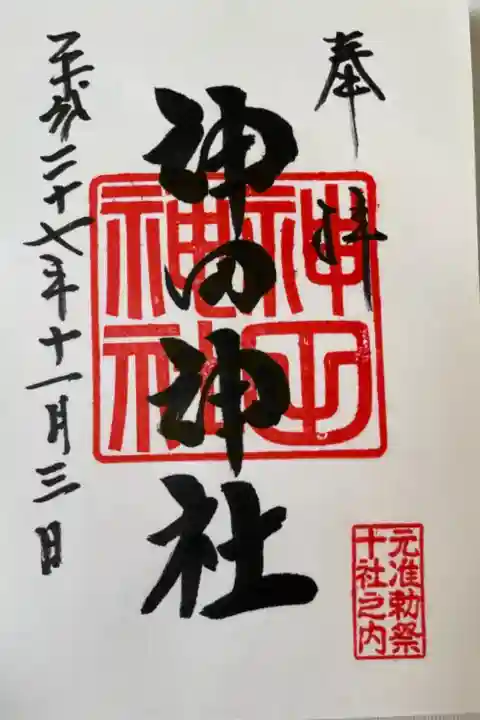 奉拝
神田神社
神田
神社
平成二十七年十一月三日
元准勅祭
十社之内